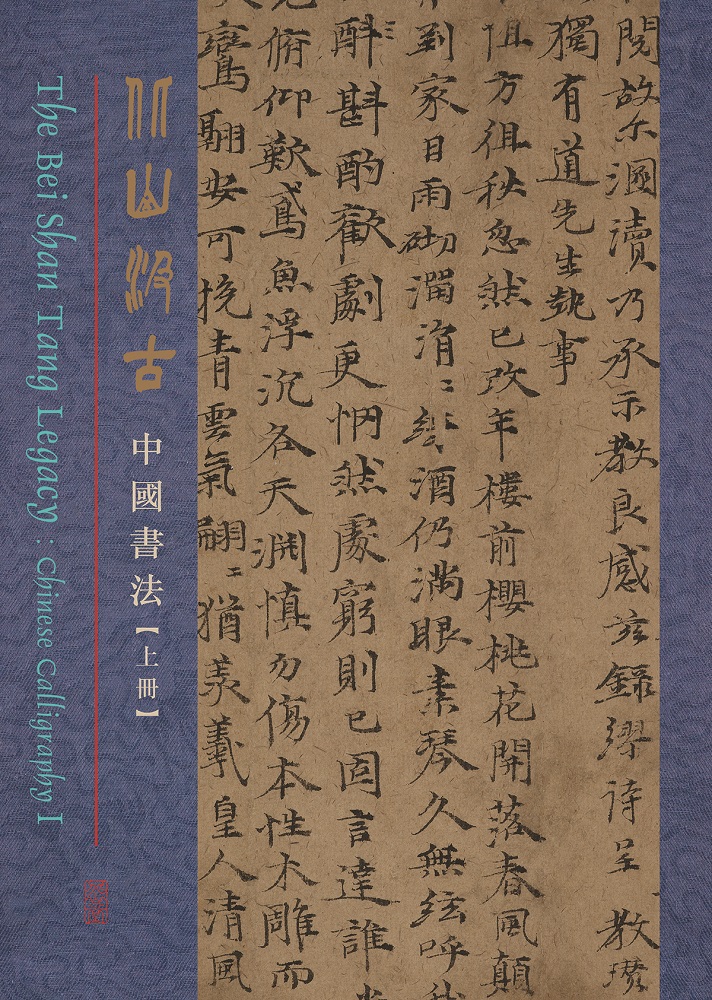 閱故尓溷瀆乃承示教良感玆錄繆詩呈教
獨有道先生執事
徂方徂秋忽然已改年樓前櫻桃花開落春風顛
到家日雨砌潤涓〻綠酒仍滿眼素琴久無絃呼我
斟酌歡劇更惘然處窮則已固言達誰
俯仰歎鳶魚浮沉各天淵慎勿傷本性木雕而
鸞翮安可挽青雲氣翩〻猶羨羲皇人清風
北山汲古
中國書法【上冊】
The Bei Shan Tang Legacy : Chinese Calligraphy I